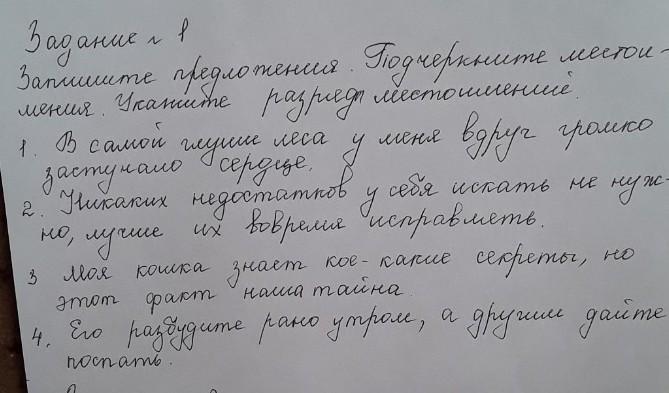 Задание № 1
Запишите предложения. Подчеркните местои-
мения. Укажите разряды местоимений.
1. В самой глуши леса у меня вдруг громко
застучало сердце.
2. Никаких недостатков у себя искать не нуж-
но, лучше их вовремя исправлять.
3 Моя кошка знает кое-какие секреты, но
этот факт наша тайна.
4. Его разбудите рано утром, а другим дайте
поспать.